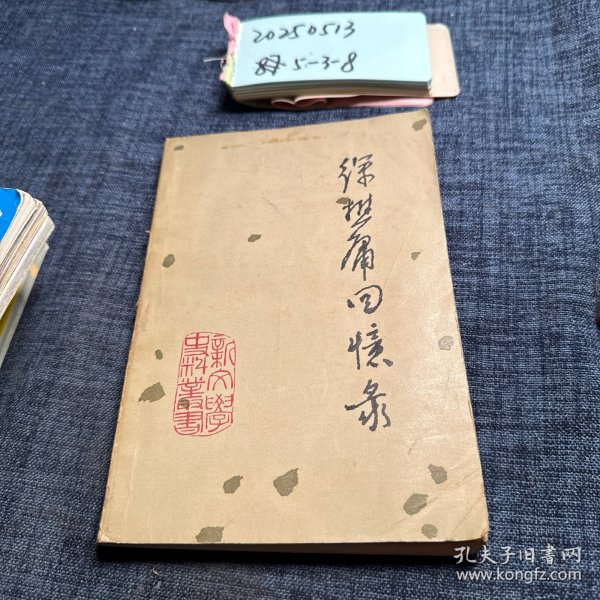 20250513
5-3-8
徐懋庸回憶录
新文學
史料叢書
孔夫子旧书网
www.kongfz.com